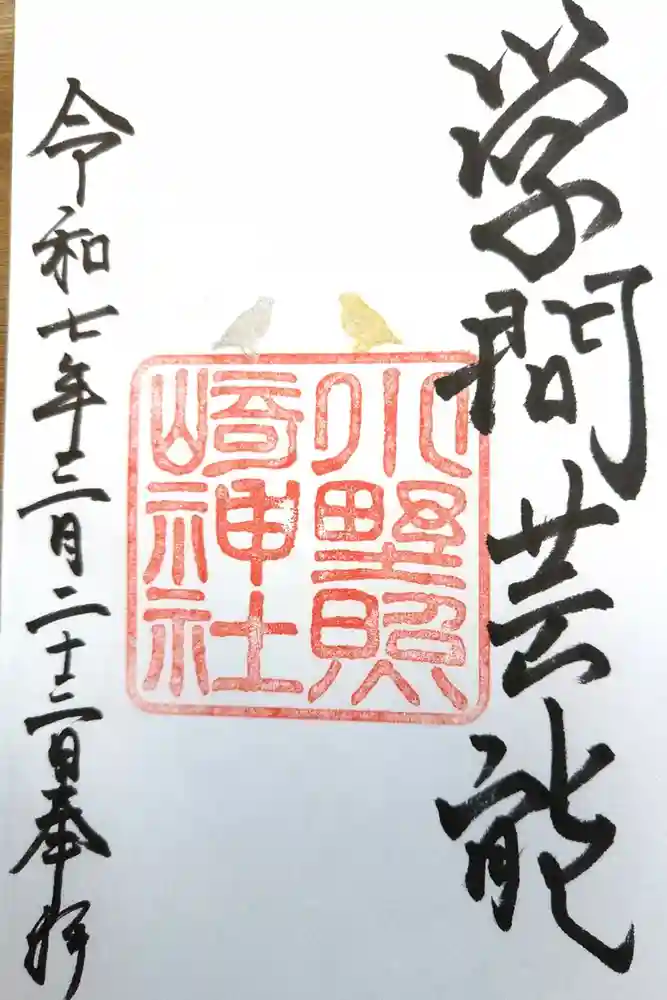 学問芸能
小野照
崎神社
令和七年三月二十三日奉拝